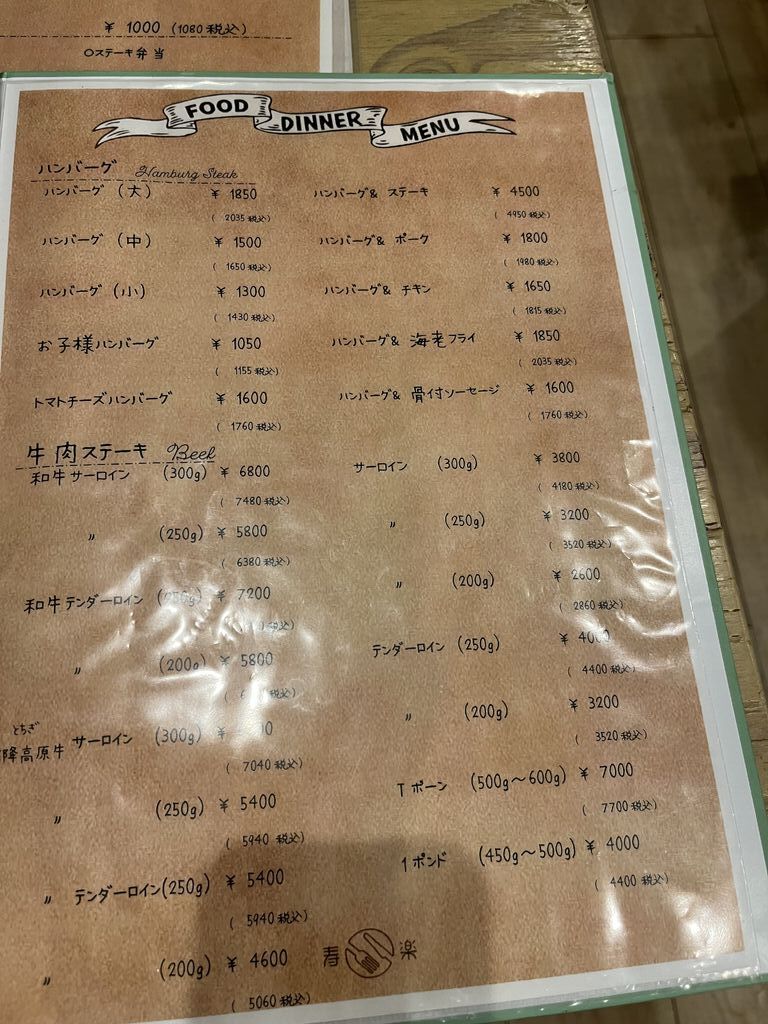 ¥ 1000 (1080 税込)
〇ステーキ弁当
FOOD DINNER MENU
ハンバーグ Hamburg Steak
ハンバーグ (大) ¥ 1850
( 2035 税込)
ハンバーグ (中) ¥ 1500
( 1650 税込)
ハンバーグ (小) ¥ 1300
( 1430 税込)
お子様ハンバーグ ¥ 1050
( 1155 税込)
トマトチーズハンバーグ ¥ 1600
( 1760 税込)
ハンバーグ& ステーキ ¥ 4500
( 4950 税込)
ハンバーグ& ポーク ¥ 1800
( 1980 税込)
ハンバーグ& チキン ¥ 1650
( 1815 税込)
ハンバーグ& 海老フライ ¥ 1850
( 2035 税込)
ハンバーグ& 骨付ソーセージ ¥ 1600
( 1760 税込)
牛肉ステーキ Beef
和牛サーロイン (300g) ¥ 6800
( 7480 税込)
〃 (250g) ¥ 5800
( 6380 税込)
和牛テンダーロイン ¥ 7200
税込)
〃 (200g) ¥ 5800
税込)
とちぎ
降高原牛 サーロイン (300g) ¥
( 7040 税込)
〃 (250g) ¥ 5400
( 5940 税込)
〃 テンダーロイン(250g) ¥ 5400
( 5940 税込)
〃 (200g) ¥ 4600
( 5060 税込)
サーロイン (300g) ¥ 3800
( 4180 税込)
〃 (250g) ¥ 3200
( 3520 税込)
〃 (200g) ¥ 2600
( 2860 税込)
テンダーロイン (250g) ¥ 4000
( 4400 税込)
〃 (200g) ¥ 3200
( 3520 税込)
Tボーン (500g〜600g) ¥ 7000
( 7700 税込)
1ポンド (450g〜500g) ¥ 4000
( 4400 税込)
寿 楽